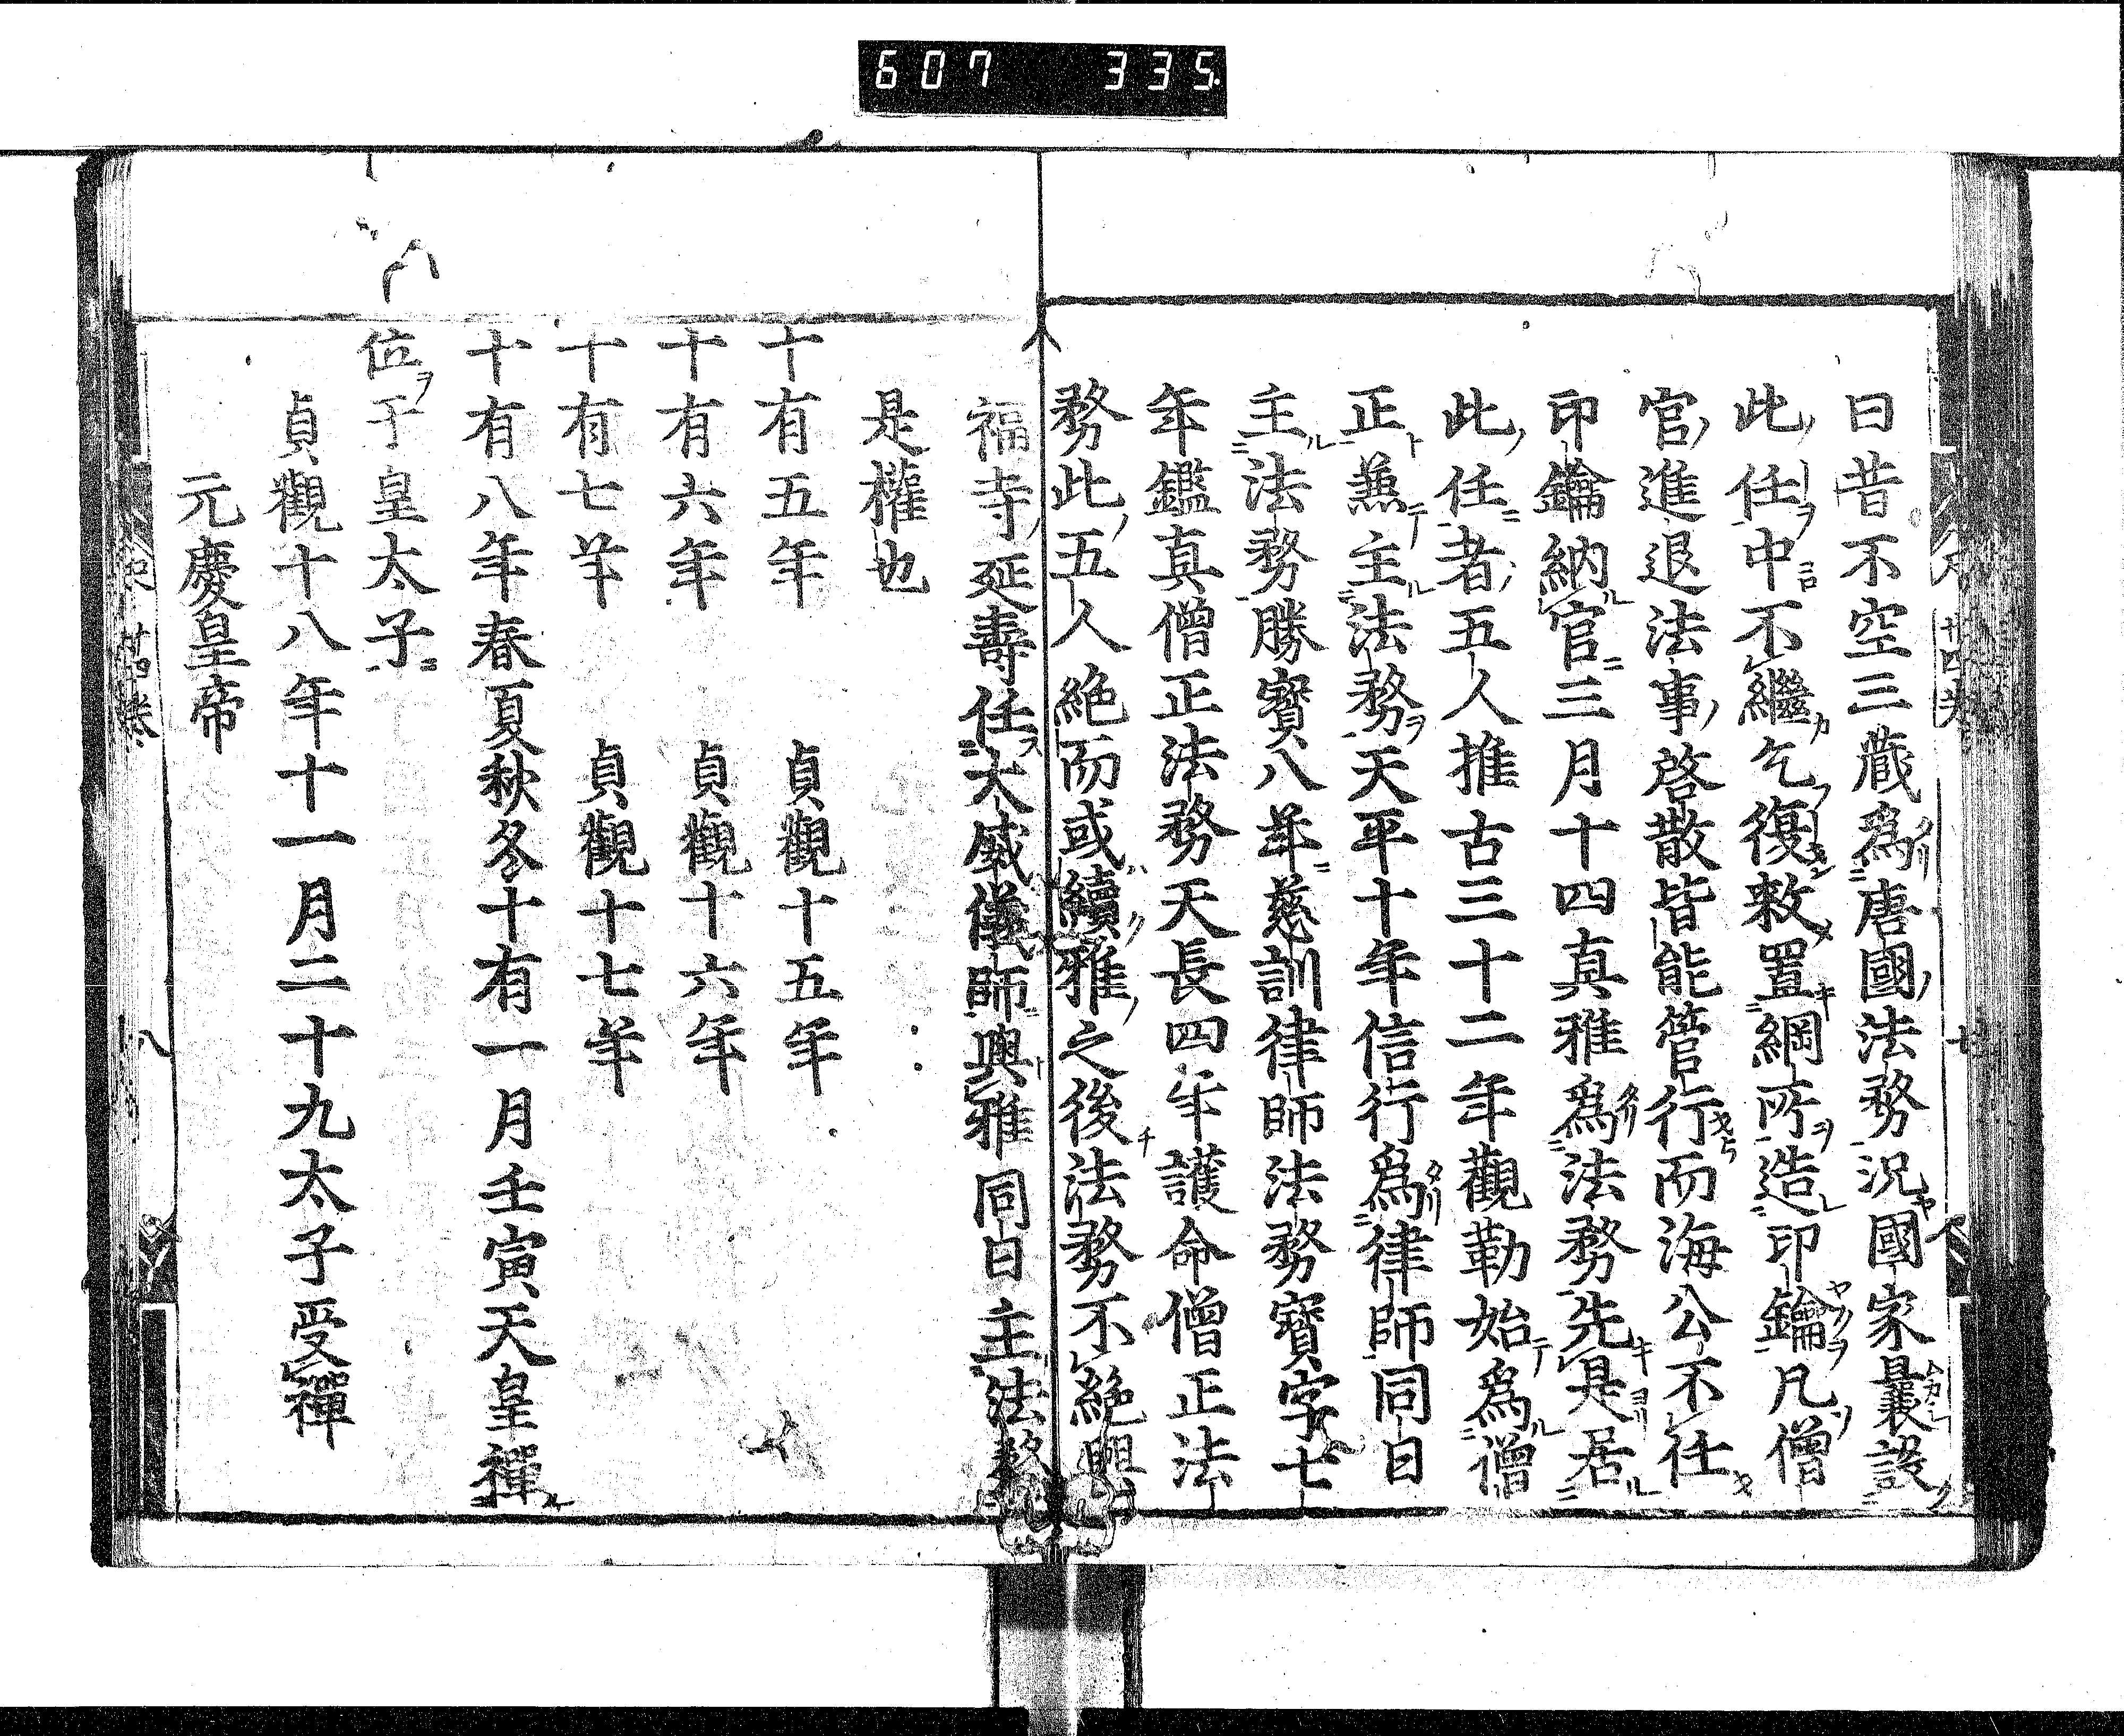 607 335
曰昔不空三藏爲唐國法務況國家曩設
此任中不繼乞復救置綱所造印鑰凡僧
官進退法事啓散皆能管行而海公不任
印鑰納官三月十四真雅爲法務先是居
此任者五人推古三十二年觀勒始爲僧
正兼主法務天平十年信行爲律師同日
主法務勝寳八年慈訓律師法務寳字七
年鑑真僧正法務天長四年護命僧正法
務此五人絶而或續雅之後法務不絶興
福寺延壽任大威儀師與雅同日主法務
是權也
十有五年 貞觀十五年
十有六年 貞觀十六年
十有七年 貞觀十七年
十有八年春夏秋冬十有一月壬寅天皇禪
位于皇太子
貞觀十八年十一月二十九太子受禪
元慶皇帝
廿四卷 八